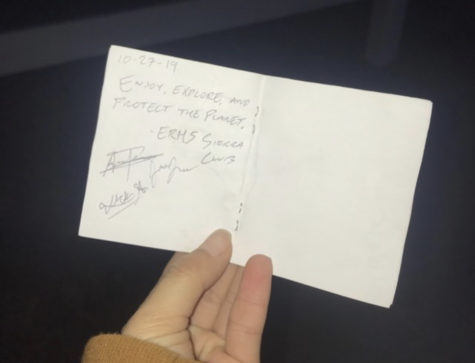 10-27-19
ENJOY, EXPLORE, AND
PROTECT THE PLANET.
-ERHS SIERRA
CLUB